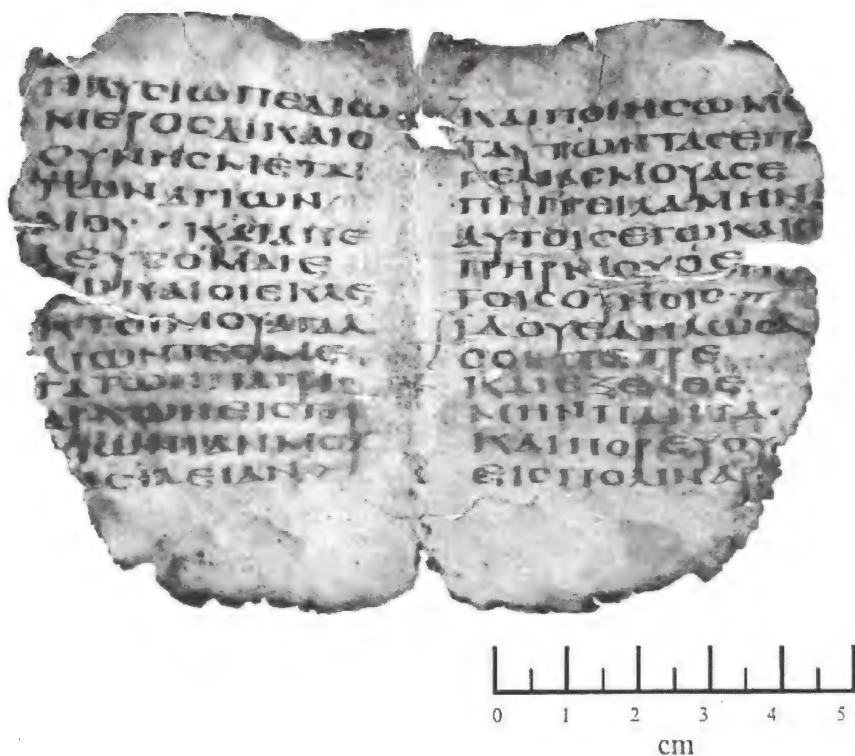 ΗΛΥϹΙΩΠΕΔΙΩ
ΜΕΡΟϹΔΙΚΑΙΟ
ϹΥΝΗϹΜΕΤΑ
ΤΩΝΑΓΙΩΝ
ΜΟΥ·ΚΑΙΑΠΕ
ΛΕΥϹΟΜΑΙΕ
ΚΑΙΟΙΕΚΛΕ
ΚΤΟΙΜΟΥΑΓΑΛ
ΛΙΩΝΤΕϹΜΕ
ΤΑΤΩΝΠΑΤΡΙ
ΑΡΧΩΝΕΙϹΤΗ
ΑΙΩΝΙΑΝΜΟΥ
ΒΑϹΙΛΕΙΑΝ
ΚΑΙΠΟΙΗϹΩΜΕ
ΤΑΥΤΩΝΤΑϹΕΠ
ΓΕΛΙΑϹΜΟΥΑϹΕ
ΠΗΓΓΕΙΛΑΜΗΝ
ΑΥΤΟΙϹΕΓΩΚΑΙΟ
ΠΗΡΜΟΥΟΕ
ΤΟΙϹΟΥΝΟΙϹ
ΙΔΟΥΕΔΗΛΩϹΑ
ϹΟΙΠΕΤΡΕ
ΚΑΙΕΞΕΘΕ
ΜΗΝΠΑΝΤΑ·
ΚΑΙΠΟΡΕΥΟΥ
ΕΙϹΠΟΛΙΝΑΡ